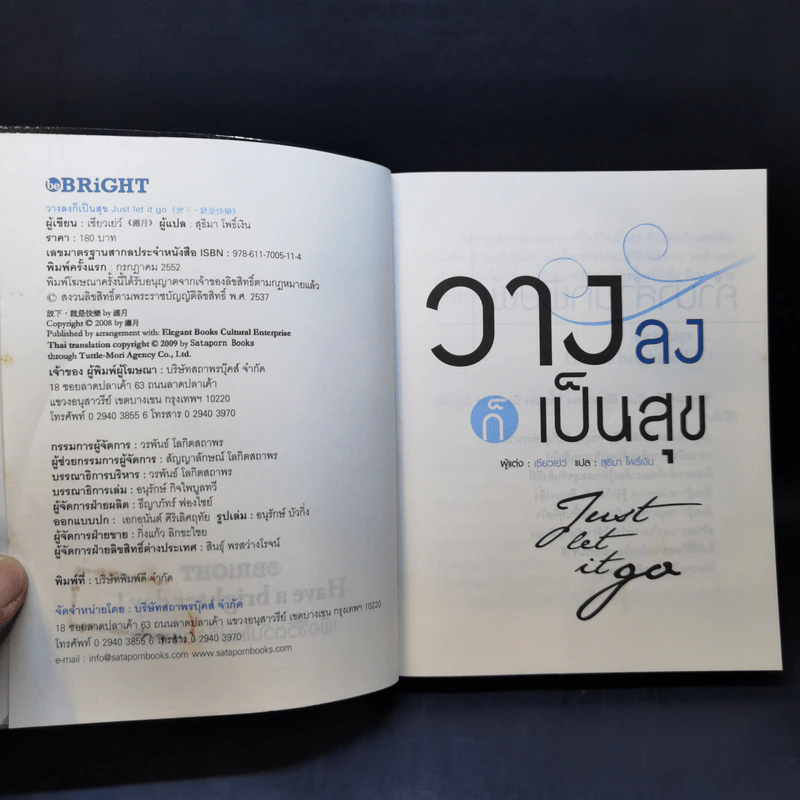 be BRiGHT
วางลงก็เป็นสุข Just let it go (放下，就是快樂)
ผู้เขียน : เซียวเย่ว์ (瀟月) ผู้แปล : สุธิมา โพธิ์เงิน
ราคา : 180 บาท
เลขมาตรฐานสากลประจำหนังสือ ISBN : 978-611-7005-11-4
พิมพ์ครั้งแรก : กรกฎาคม 2552
พิมพ์โฆษณาครั้งนี้ได้รับอนุญาตจากเจ้าของลิขสิทธิ์ตามกฎหมายแล้ว
© สงวนลิขสิทธิ์ตามพระราชบัญญัติลิขสิทธิ์ พ.ศ. 2537
放下，就是快樂 by 瀟月
Copyright © 2008 by 瀟月
Published by arrangement with: Elegant Books Cultural Enterprise
Thai translation copyright © 2009 by Sataporn Books
through Tuttle-Mori Agency Co., Ltd.
เจ้าของ ผู้พิมพ์ผู้โฆษณา : บริษัทสถาพรบุ๊คส์ จำกัด
18 ซอยลาดปลาเค้า 63 ถนนลาดปลาเค้า
แขวงอนุสาวรีย์ เขตบางเขน กรุงเทพฯ 10220
โทรศัพท์ 0 2940 3855 6 โทรสาร 0 2940 3970
กรรมการผู้จัดการ : วรพันธ์ โลกิตสถาพร
ผู้ช่วยกรรมการผู้จัดการ : สัญญาลักษณ์ โลกิตสถาพร
บรรณาธิการบริหาร : วรพันธ์ โลกิตสถาพร
บรรณาธิการเล่ม : อนุรักษ์ กิจไพบูลทวี
ผู้จัดการฝ่ายผลิต : ธีญาภัทร์ ฟองไชย์
ออกแบบปก : เอกอนันต์ ศิริเลิศฤทัย รูปเล่ม : อนุรักษ์ บัวกิ่ง
ผู้จัดการฝ่ายขาย : กิ่งแก้ว ลิกขะไชย
ผู้จัดการฝ่ายลิขสิทธิ์ต่างประเทศ : สินธุ์ พรสว่างโรจน์
พิมพ์ที่ : บริษัทพิมพ์ดี จำกัด
จัดจำหน่ายโดย : บริษัทสถาพรบุ๊คส์ จำกัด
18 ซอยลาดปลาเค้า 63 ถนนลาดปลาเค้า แขวงอนุสาวรีย์ เขตบางเขน กรุงเทพฯ 10220
โทรศัพท์ 0 2940 3855 6 โทรสาร 0 2940 3970
e-mail : info@satapornbooks.com www.satapornbooks.com
วางลง
ก็เป็นสุข
ผู้แต่ง : เซียวเย่ว์ แปล : สุธิมา โพธิ์เงิน
Just
let
it go